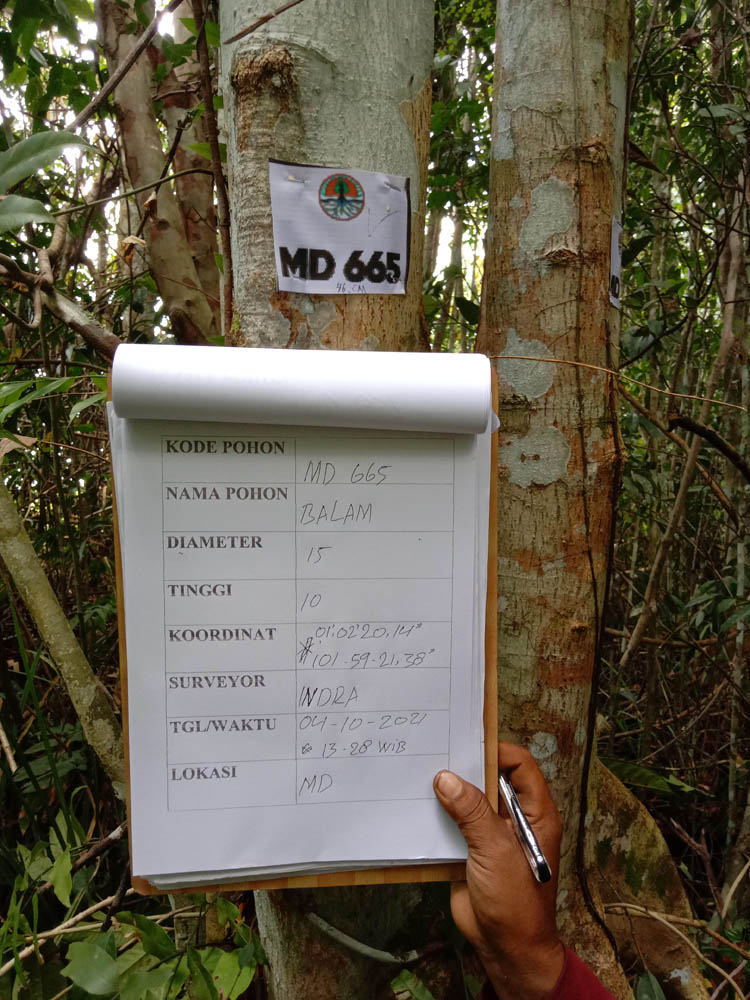 MD 665
46 CM
KODE POHON MD 665
NAMA POHON BALAM
DIAMETER 15
TINGGI 10
KOORDINAT 01°02'20,14"
101-59-21,38"
SURVEYOR INDRA
TGL/WAKTU 04-10-2021
13-28 WIB
LOKASI MD